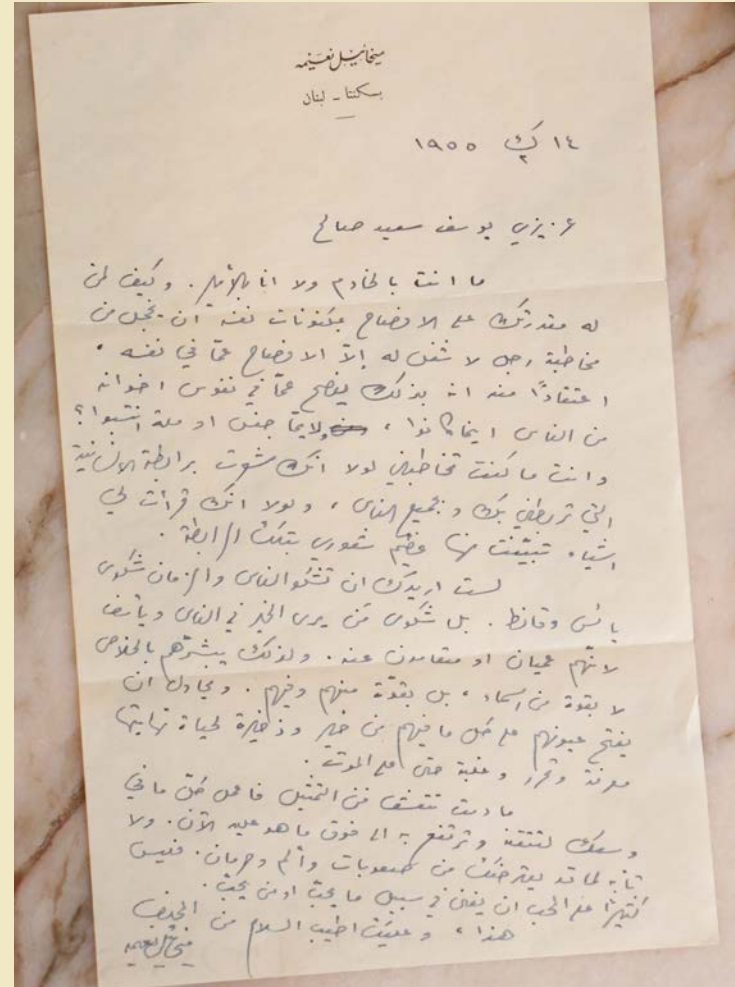 ميخائيل نعيمه
بسكنتا - لبنان
١٤ ك٢ ١٩٥٥
عزيزي يوسف سعيد صالح
ما انت بالخادم ولا انا بالأمير. وكيف لمن
له مقدرتك على الافصاح عن مكنونات نفسه ان يخجل من
مخاطبة رجل لا شغل له إلاّ الافصاح عمّا في نفسه،
اعتقادًا منه انه بذلك يفصح عمّا في نفوس اخوانه
من الناس اينما كانوا، ولايّما جنس او ملة انتسبوا؟
وانت ما كنت تخاطبني لولا انك شعرت برابطة الانسانية
التي تربطني بك وبجميع الناس، ولولا انك قرأت لي
اشياء تبيّنت منها عظيم شعوري بتلك الرابطة.
لست اريدك ان تشكو الناس والزمان شكوى
يائس وقانط. بل شكوى مَن يرى الخير في الناس ويأسف
لانّهم عميان او متعامون عنه. ولذلك يبشّرهم بالخلاص
لا بقوة من السماء، بل بقوّة منهم وفيهم. ويحاول ان
يفتح عيونهم على كل ما فيهم من خير وذخيرة لحياة نهايتها
معرفة وتحرر وغلبة حتى على الموت.
ما دمت تتعشق فنّ التمثيل فاعمل كلّ ما في
وسعك لتتقنه وترتفع به الى فوق ما هو عليه الآن. ولا
تأبه لما قد يعترضك من صعوبات وألم وحرمان. فليس
كثيرًا على المحب ان يفنى في سبيل ما يحبّ او من يحبّ.
هذا، وعليك اطيب السلام من المخلص
ميخائيل نعيمه